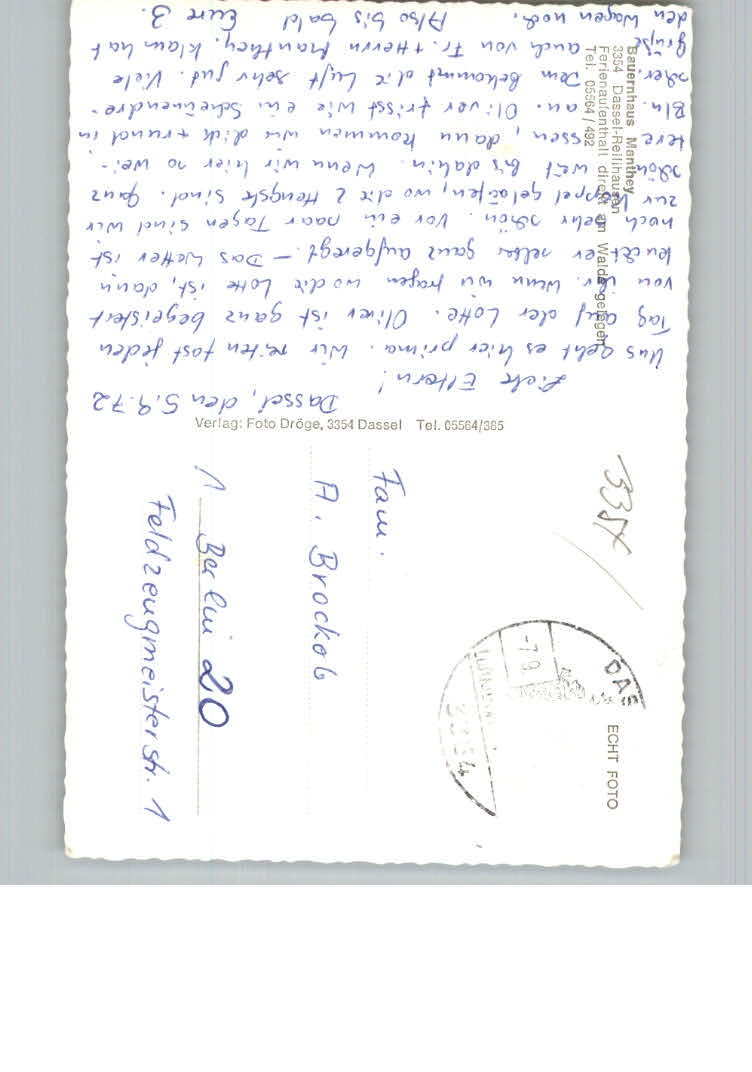 Dassel, den 5.9.72
Liebe Eltern!
Uns geht es hier prima. Wir reiten fast jeden
Tag auf der Lotte. Oliver ist ganz begeistert
von ihr. Wenn wir fragen wo die Lotte ist, dann
er selber ganz aufgeregt. – Das Wetter ist
noch sehr schön. Vor ein paar Tagen sind wir
zur Koppel gelaufen, wo die 2 Hengste sind. Ganz
schön weit bis dahin. Wenn wir hier so wei-
tere essen, dann kommen wir dick + rund in
Bln. an. Oliver frisst wie ein Scheunendre-
scher. Dem bekommt die Luft sehr gut. Viele
Grüße auch von Fr. + Herrn Manthey. Klaus hat
den Wagen noch. Also bis bald Eure 3.
Bauernhaus Manthey
3354 Dassel-Relliehausen
Ferienaufenthalt direkt am Walde gelegen
Tel. 05564 / 492
Verlag: Foto Dröge, 3354 Dassel Tel. 05564/385
Fam.
A. Brockob
1 Berlin 20
Feldzeugmeisterstr. 1
3354
DAS
-7.9.
3354
ECHT FOTO